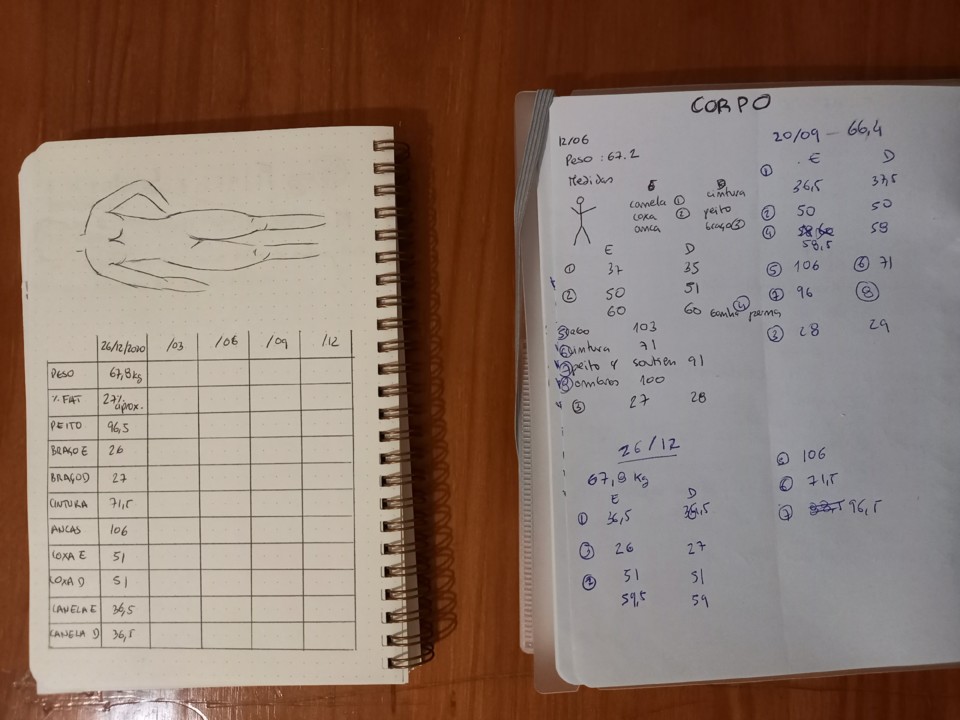 26/12/2020 /03 /06 /09 /12
PESO 67,8kg
% FAT 27% aprox.
PEITO 96,5
BRAÇO E 26
BRAÇO D 27
CINTURA 71,5
ANCAS 106
COXA E 51
COXA D 51
CANELA E 36,5
CANELA D 36,5
CORPO
12/06
Peso : 67.2
Medidas
canela ① cintura
coxa ② peito
anca braço ③
E D
① 37 35
② 50 51
60 60 ④
103
cintura 71
⑦ peito soutien 91
⑧ ombros 100
③ 27 28
20/09 - 66,4
E D
① 36,5 37,5
② 50 50
④ 59
58,5
⑤ 106 ⑥ 71
⑦ 96 ⑧
③ 28 29
26/12
67,8 kg
E D
① 36,5 36,5
③ 26 27
② 51 51
59,5 59
⑤ 106
⑥ 71,5
⑦ 96,5